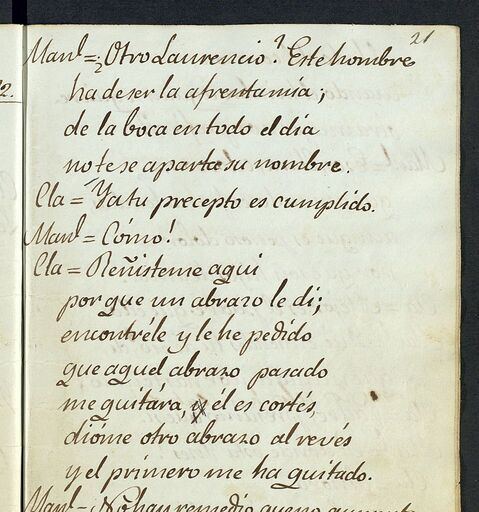 21
2.
Man^l = ¿Otro Laurencio? Este hombre
ha de ser la afrenta mia;
de la boca en todo el dia
no te se aparta su nombre.
Cla = Ya tu precepto es cumplido.
Man^l = Cómo!
Cla = Reñisteme aqui
porque un abrazo le di;
encontréle y le he pedido
que aquel abrazo pasado
me quitára, y él es cortés,
dióme otro abrazo al revés
y el primero me ha quitado.
Man^l = No hay remedio que no aumente